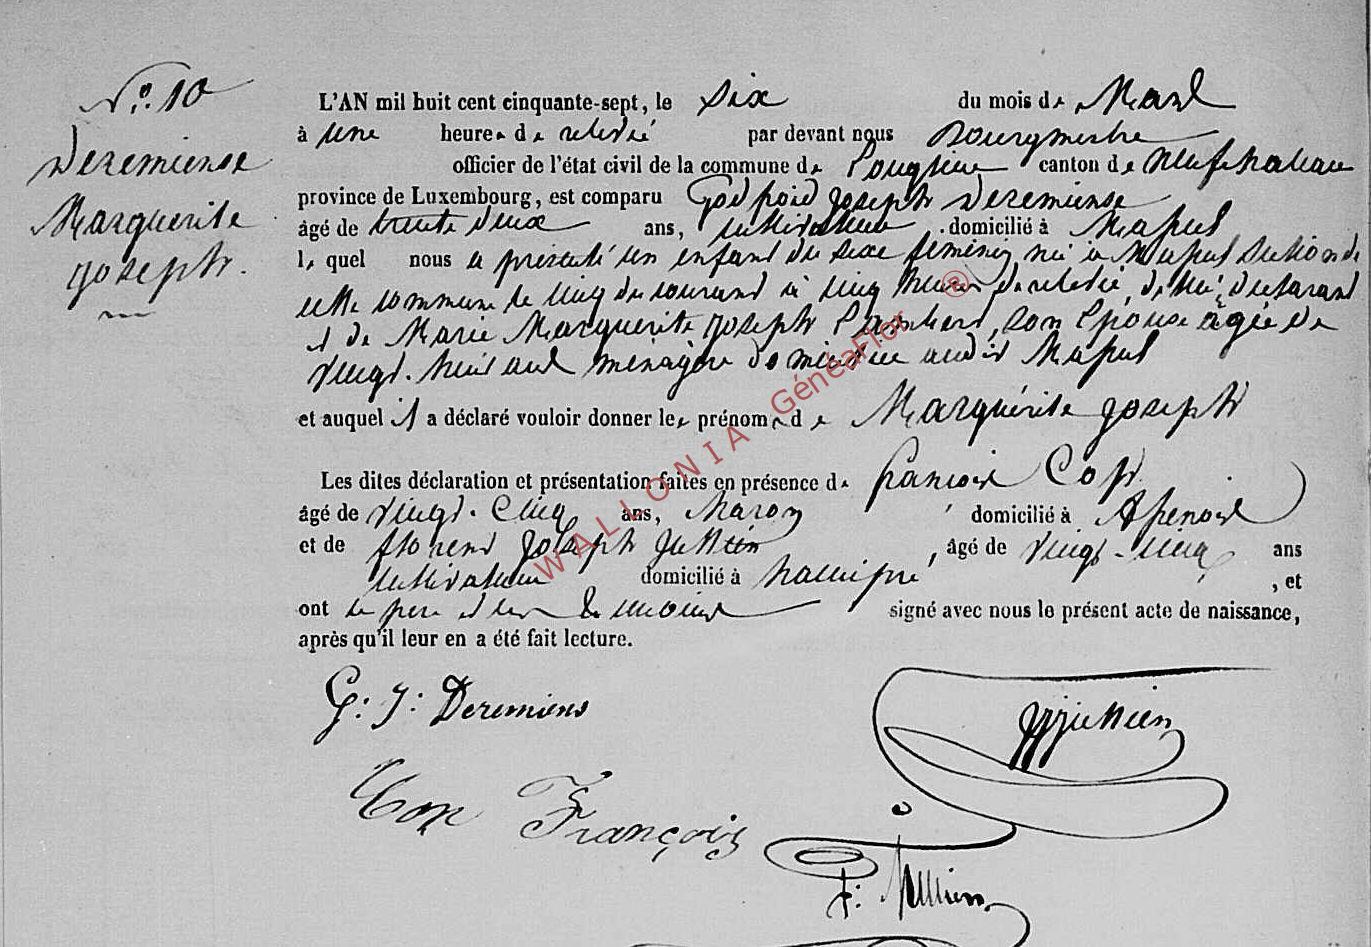 N°. 10
Deremiense
Marguerite
Joseph.
L'AN mil huit cent cinquante-sept, le six du mois de Mars
à une heure de relevée par devant nous Bourgmestre
officier de l'état civil de la commune de Longlier canton de Neufchateau
province de Luxembourg, est comparu Godfroid Joseph Deremiense
âgé de trente deux ans, cultivateur domicilié à Massul
lequel nous a présenté un enfant du sexe féminin né à Massul section de
cette commune le cinq du courant à cinq heures de relevée, de lui déclarant
et de Marie Marguerite Joseph Lambert, son épouse agée de
vingt-huit ans ménagère domiciliée audit Massul
et auquel il a déclaré vouloir donner les prénoms de Marguérite Joseph
Les dites déclaration et présentation faites en présence de francois
âgé de vingt-cinq ans, Maçon domicilié à Assenois
et de florent Joseph Jullien, âgé de vingt-cinq ans
cultivateur domicilié à hamipré, et
ont le père et les témoins signé avec nous le présent acte de naissance,
après qu'il leur en a été fait lecture.
G: J: Deremiens
Jullien
François
F: Jullien
WALLONIA GénéaFlor ®